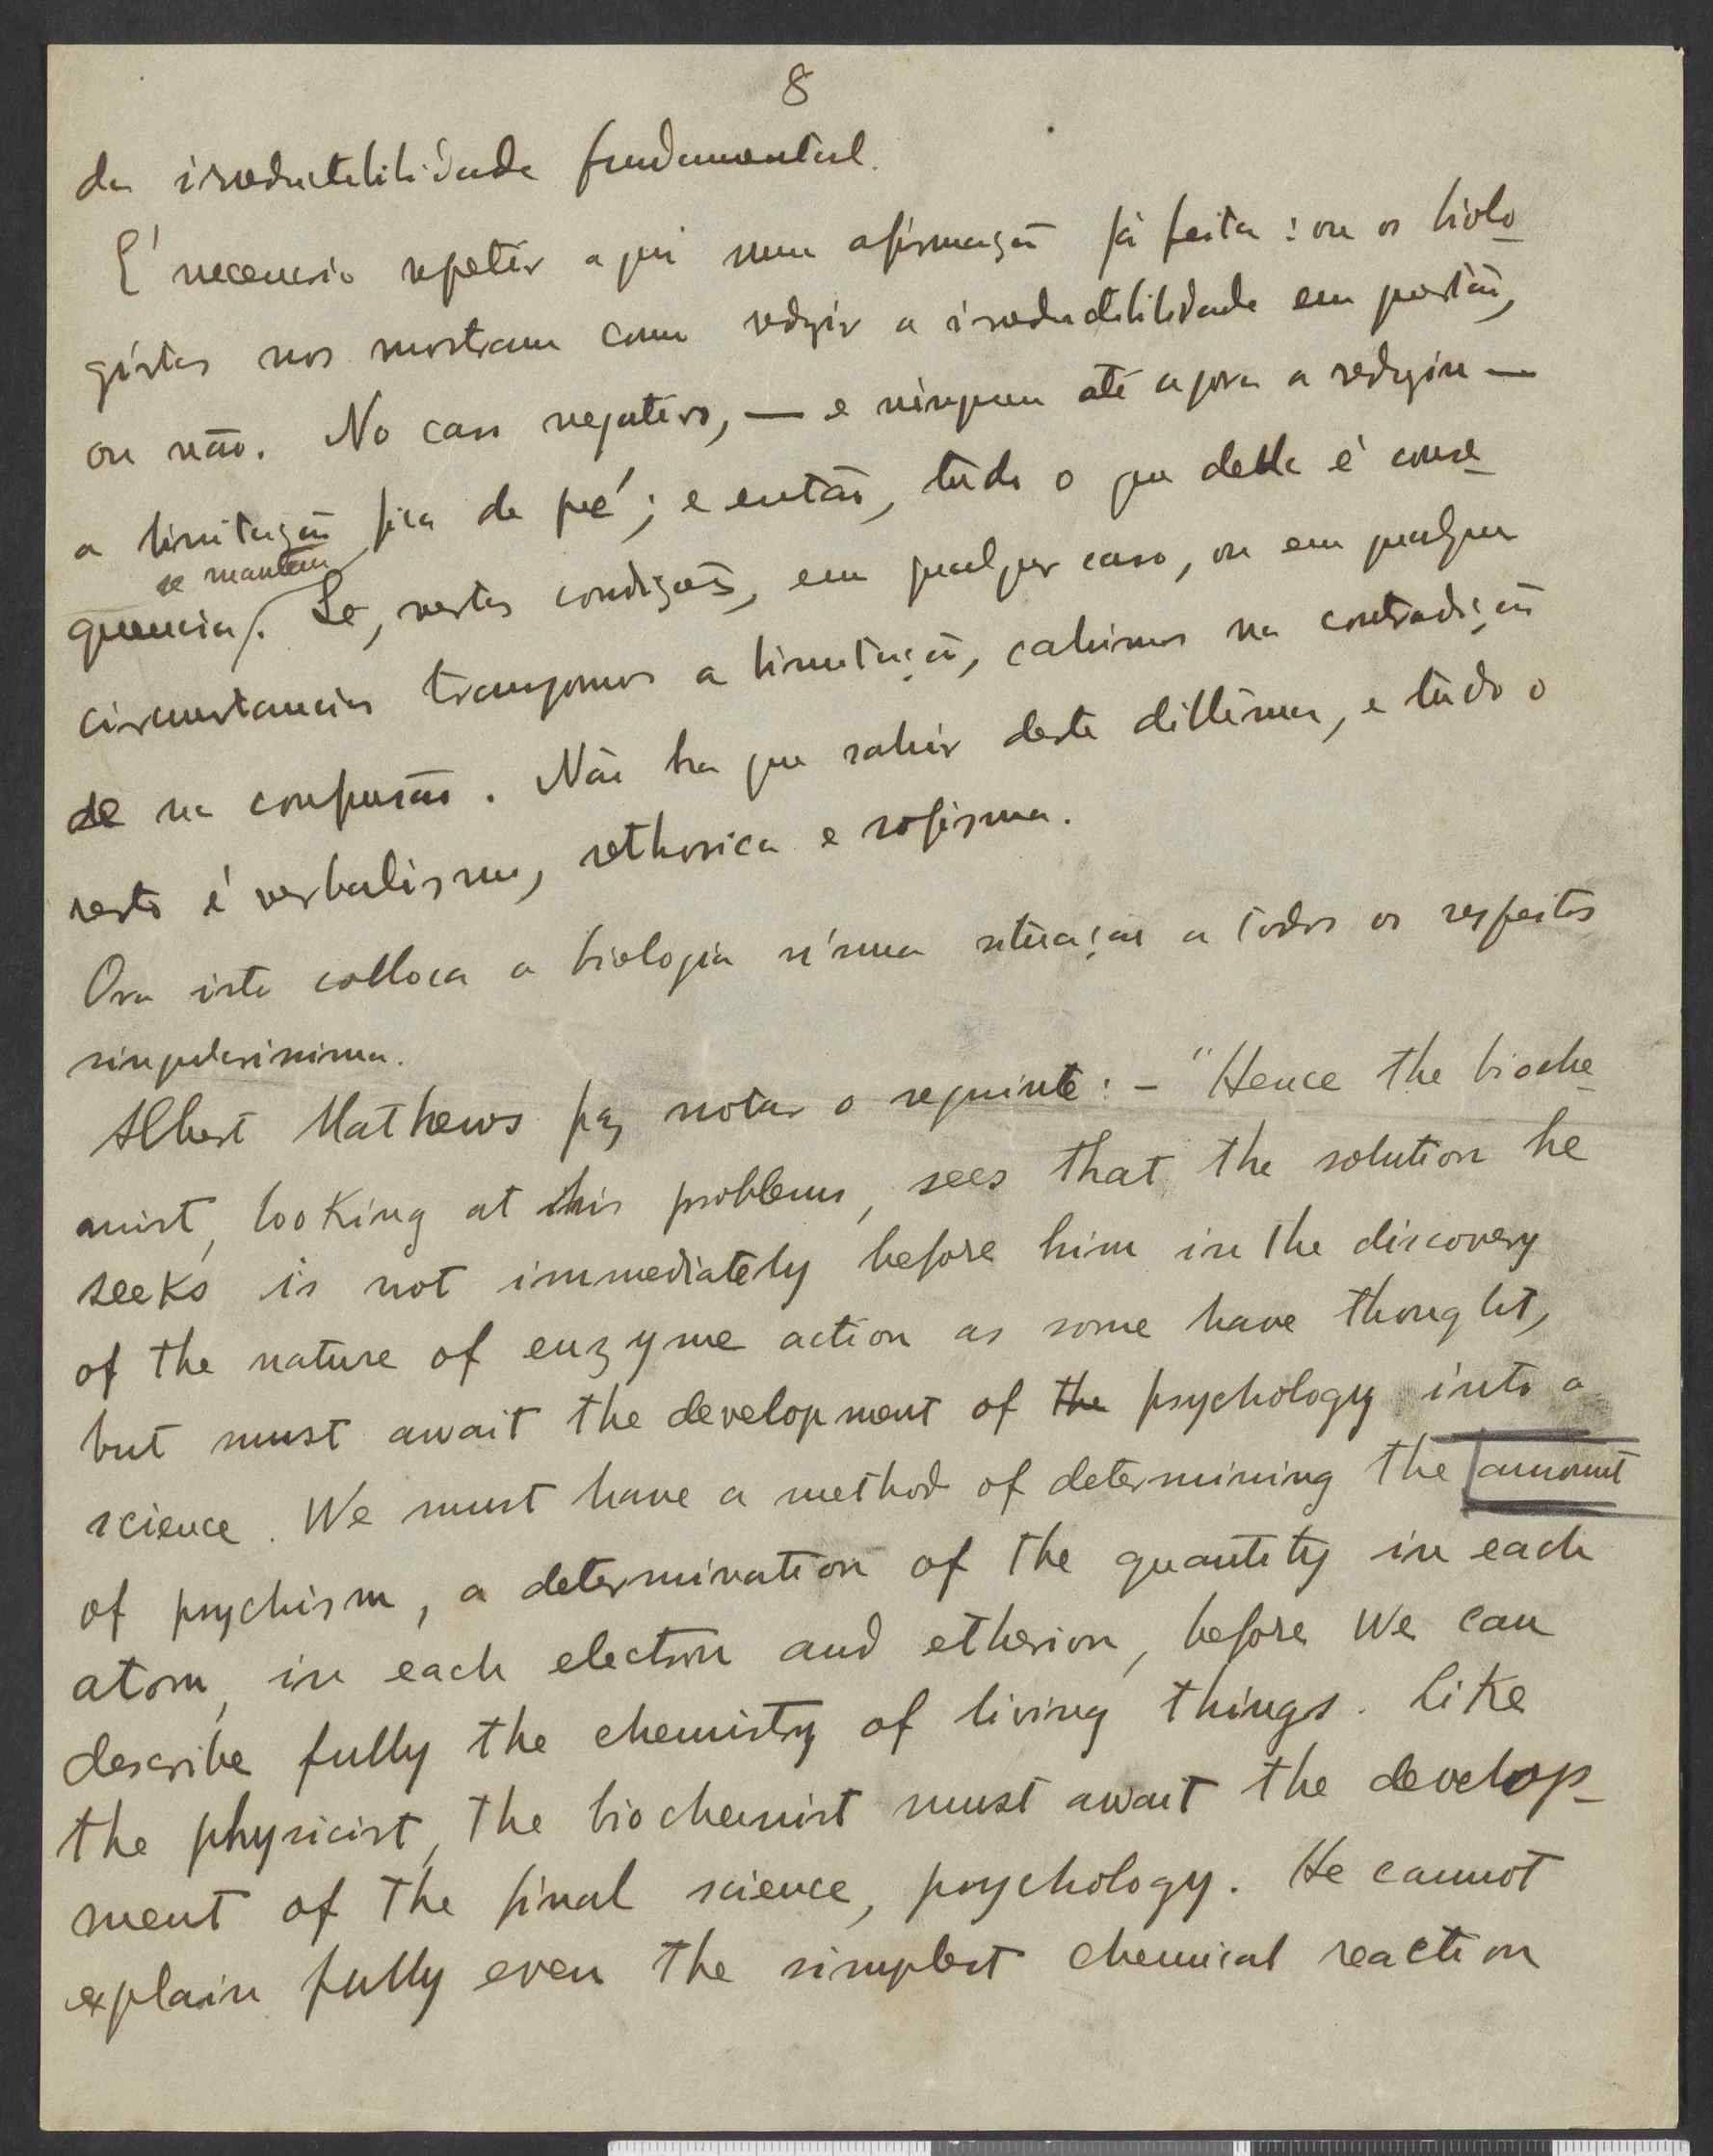 8
da irreductibilidade fundamental.
É necessario repetir aqui uma afirmação já feita : ou os biolo-
gistas nos mostram como reduzir a irreductibilidade em questão,
ou não. No caso negativo, — e ninguem até agora a reduziu —
a limitação fica de pé ; e então, tudo o que della é conse-
se mantem
quencia. Se, nestas condições, em qualquer caso, ou em qualquer
circumstancias transpomos a limitação, cahimos na contradição
e na confusão. Não ha que sahir deste dillema, e tudo o
resto é verbalismo, rethorica e sofisma.
Ora isto colloca a biologia n'uma situação a todos os respeitos
singularissima.
Albert Mathews faz notar o seguinte : – "Hence the bioche-
mist, looking at this problem, sees that the solution he
seeks is not immediately before him in the discovery
of the nature of enzyme action as some have thought,
but must await the development of the psychology into a
science. We must have a method of determining the [amount
of psychism, a determination of the quantity in each
atom, in each electron and etherion, before we can
describe fully the chemistry of living things. Like
the physicist, the biochemist must await the develop-
ment of the final science, psychology. He cannot
explain fully even the simplest chemical reaction